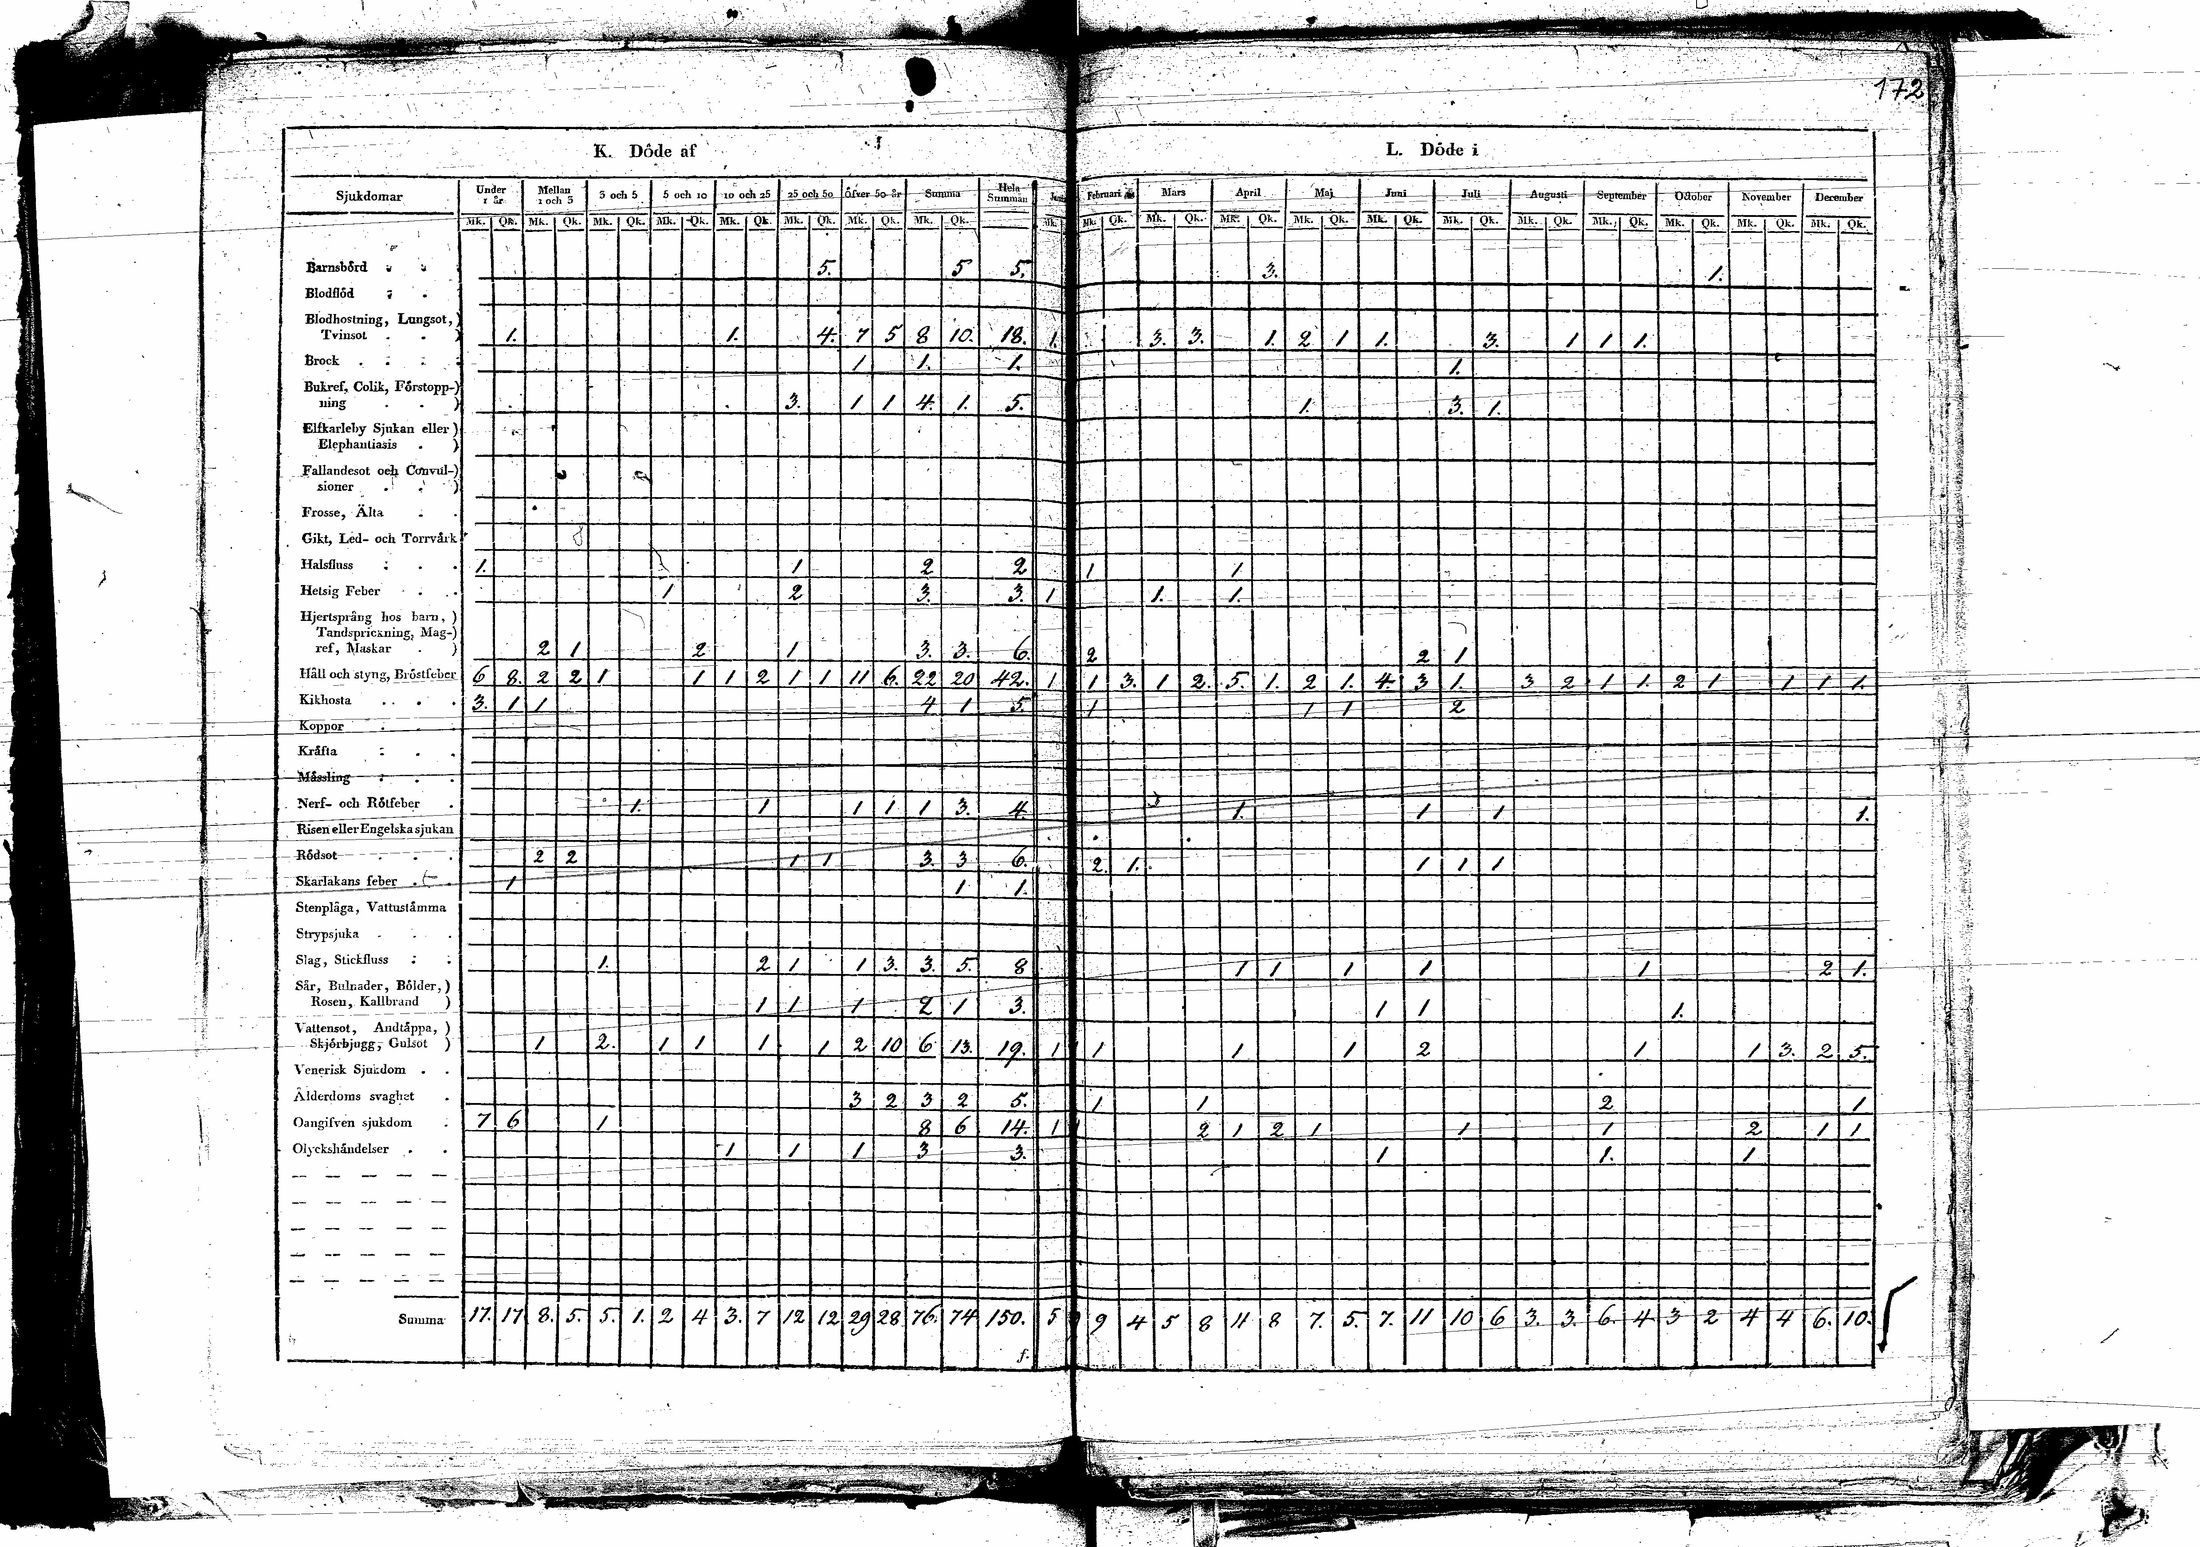 172
K. Döde af
L. Döde i
Sjukdomar Under 1 år Mellan 1 och 3 3 och 5 5 och 10 10 och 25 25 och 50 Öfver 50 år Summa Hela Summan Februari Mars April Maj Juni Juli Augusti September October November December
Mk. Qk. Mk. Qk. Mk. Qk. Mk. Qk. Mk. Qk. Mk. Qk. Mk. Qk. Mk. Qk. Mk. Mk. Qk. Mk. Qk. Mk. Qk. Mk. Qk. Mk. Qk. Mk. Qk. Mk. Qk. Mk. Qk. Mk. Qk. Mk. Qk. Mk. Qk.
Barnsbörd 5. 5 5. 3. 1.
Blodflöd
Blodhostning, Lungsot,
Tvinsot 1. 1. 4. 7 5 8 10. 18. 1. 3. 3. 1. 2 1 1. 3. 1 1 1.
Brock 1 1. 1. 1.
Bukref, Colik, Förstopp-
ning 3. 1 1 4. 1. 5. 1. 3. 1.
Elfkarleby Sjukan eller
Elephantiasis
Fallandesot och Convul-
sioner
Frosse, Älta
Gikt, Led- och Torrvärk
Halsfluss 1. 1 2 2 1 1
Hetsig Feber 1 2 3. 3. 1 1. 1.
Hjertsprång hos barn,
Tandsprickning, Mag-
ref, Maskar 2 1 2 1 3. 3. 6. 2 2 1
Håll och styng, Bröstfeber 6 8. 2 2 1 1 1 2 1 1 11 6. 22 20 42. 1 1 3. 1 2. 5. 1. 2 1. 4. 3 1. 3 2 1 1. 2 1 1 1 1.
Kikhosta 3. 1 1 4 1 5. 1 1 1 2
Koppor
Kräfta
Mässling
Nerf- och Rötfeber 1. 1 1 1 1 3. 4. 1. 1 1 1.
Risen eller Engelska sjukan
Rödsot 2 2 1 1 3. 3 6. 2. 1. 1 1 1
Skarlakans feber 1 1 1.
Stenplåga, Vattustämma
Strypsjuka
Slag, Stickfluss 1. 2 1 1 3. 3. 5. 8 1 1 1 1 1 2 1.
Sår, Bulnader, Bölder,
Rosen, Kallbrand 1 1 1 2 1 3. 1 1 1.
Vattensot, Andtäppa,
Skjörbjugg, Gulsot 1 2. 1 1 1 1 2 10 6 13. 19. 1 1 1 1 2 1 1 3. 2 5.
Venerisk Sjukdom
Ålderdoms svaghet 3 2 3 2 5. 1 1 2 1
Oangifven sjukdom 7 6 1 8 6 14. 1 2 1 2 1 1 1 2 1 1
Olyckshändelser 1 1 1 3 3. 1 1. 1
Summa 17. 17 8. 5. 5. 1. 2 4 3. 7 12 12 29 28 76. 74 150. 5 9 4 5 8 11 8 7. 5. 7. 11 10 6 3. 3. 6. 4 3 2 4 4 6. 10.
f.